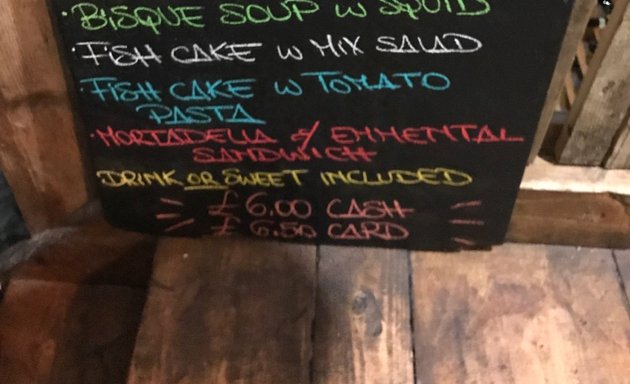 ·BISQUE SOUP W SQUID
·FISH CAKE W MIX SALAD
·FISH CAKE W TOMATO
PASTA
·MORTADELLA & EMMENTAL
SANDWICH
DRINK OR SWEET INCLUDED
£ 6.00 CASH
£ 6.50 CARD